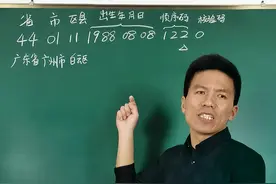 省 市 区县 出生年月日 顺序码 校验码
44 01 11 1988 08 08 122 0
广东省 广州市 白云区